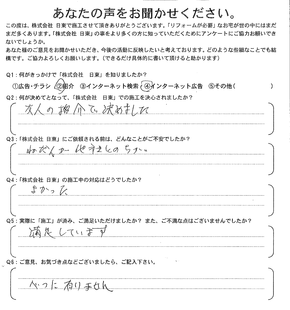 あなたの声をお聞かせください。
この度は、株式会社 日東で施工させて頂きありがとうございます。「リフォームが必要」なお宅が世の中にはまだ
まだ多くあります。「株式会社 日東」の事をより多くの方に知っていただくためにアンケートにご協力お願いでき
ないでしょうか。
あなた様のご意見をお聞かせいただき、今後の活動に反映したいと考えております。どのような些細なことでも結
構です。ご協力よろしくお願いします。(できるだけ具体的に書いて頂けると助かります)
Q1:何がきっかけで「株式会社 日東」を知りましたか?
①広告・チラシ ②紹介 ③インターネット検索 ④インターネット広告 ⑤その他( )
Q2:何が決めてとなって、「株式会社 日東」での施工を決められましたか?
友人の紹介で、決めました
Q3:「株式会社 日東」にご依頼される前は、どんなことがご不安でしたか?
ねだんが 他社とのちがい
Q4:「株式会社 日東」の施工中の対応はどうでしたか?
よかった
Q5:実際に「施工」が済み、ご満足いただけましたか? また、ご不満な点はございませんでしたか?
満足しています
Q6:ご意見、お気づき点などございましたら、ご記入下さい。
べつに有りません